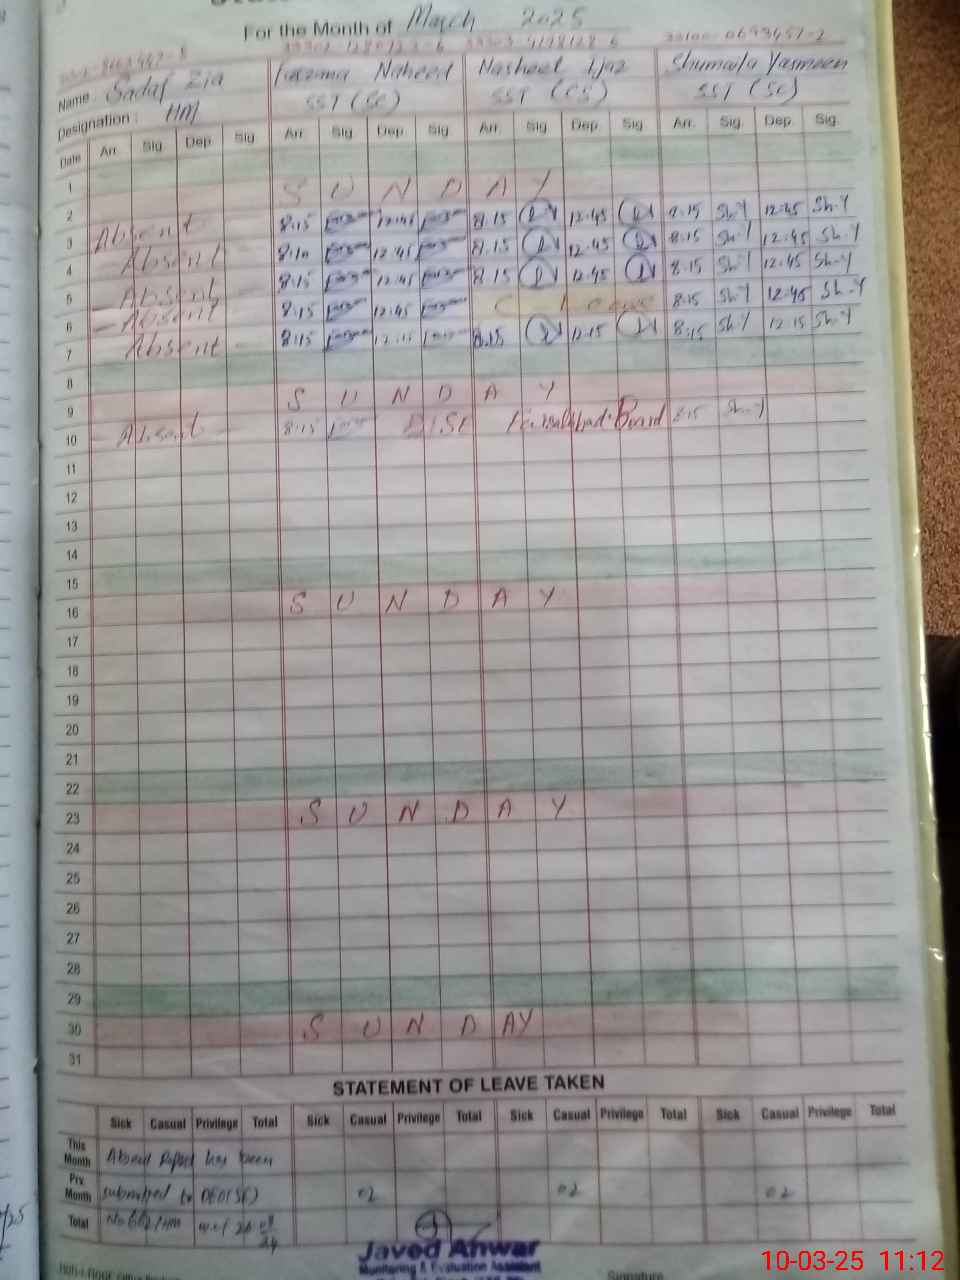 For the Month of March 2025
Name: Sadaf Zia Farzana Naheed Nasheel Ijaz Shumaila Yasmeen
Designation: HM SST (SC) SST (CS) SST (SC)
Date Arr. Sig. Dep. Sig Arr. Sig Dep. Sig Arr. Sig Dep. Sig Arr. Sig. Dep. Sig.
1
2 S U N D A Y
3 Absent 8:15 12:45 8.15 12.45 8.15 Sh-Y 12:45 Sh-Y
4 Absent 8:10 12:45 8.15 12.45 8:15 Sh-Y 12:45 Sh-Y
5 Absent 8:15 12:45 8.15 12:45 8.15 Sh-Y 12.45 Sh-Y
6 Absent 8:15 12:45 C. Leave 8:15 Sh-Y 12:45 Sh-Y
7 Absent 8:15 12:15 8.15 12.15 8:15 Sh-Y 12.15 Sh-Y
8
9 S U N D A Y
10 Absent 8:15 BISE Faisalabad Board 8:15 Sh-Y
11
12
13
14
15
16 S U N D A Y
17
18
19
20
21
22
23 S U N D A Y
24
25
26
27
28
29
30 S U N D A Y
31
STATEMENT OF LEAVE TAKEN
Sick Casual Privilege Total Sick Casual Privilege Total Sick Casual Privilege Total Sick Casual Privilege Total
This Month Absent Report has been
Prv. Month submitted to DEO(SE) 02 02 02
Total
Javed Anwar
Monitoring & Evaluation Assistant
Signature
10-03-25 11:12